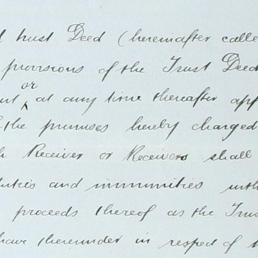 trust Deed (hereinafter calle
provisions of the Trust Deed
or at any time thereafter app
the premises hereby charged
Receiver or Receivers shall
and immunities
proceeds thereof as the Trus
have thereunder in respect of